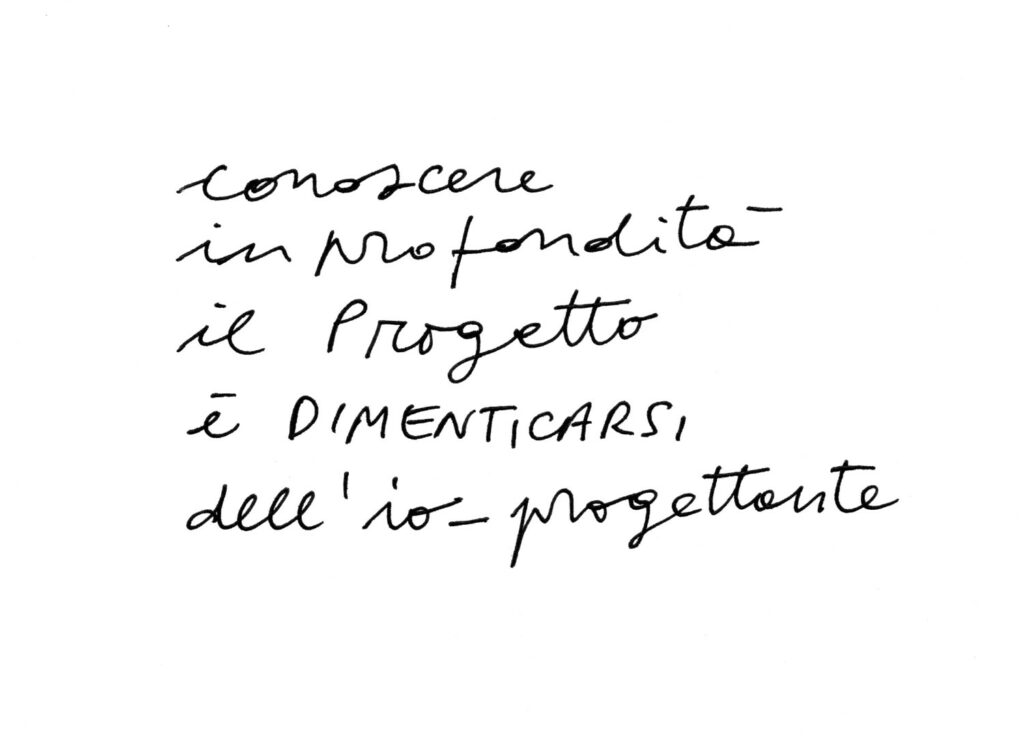 conoscere
in profondità
il Progetto
è DIMENTICARSI
dell'io-progettante